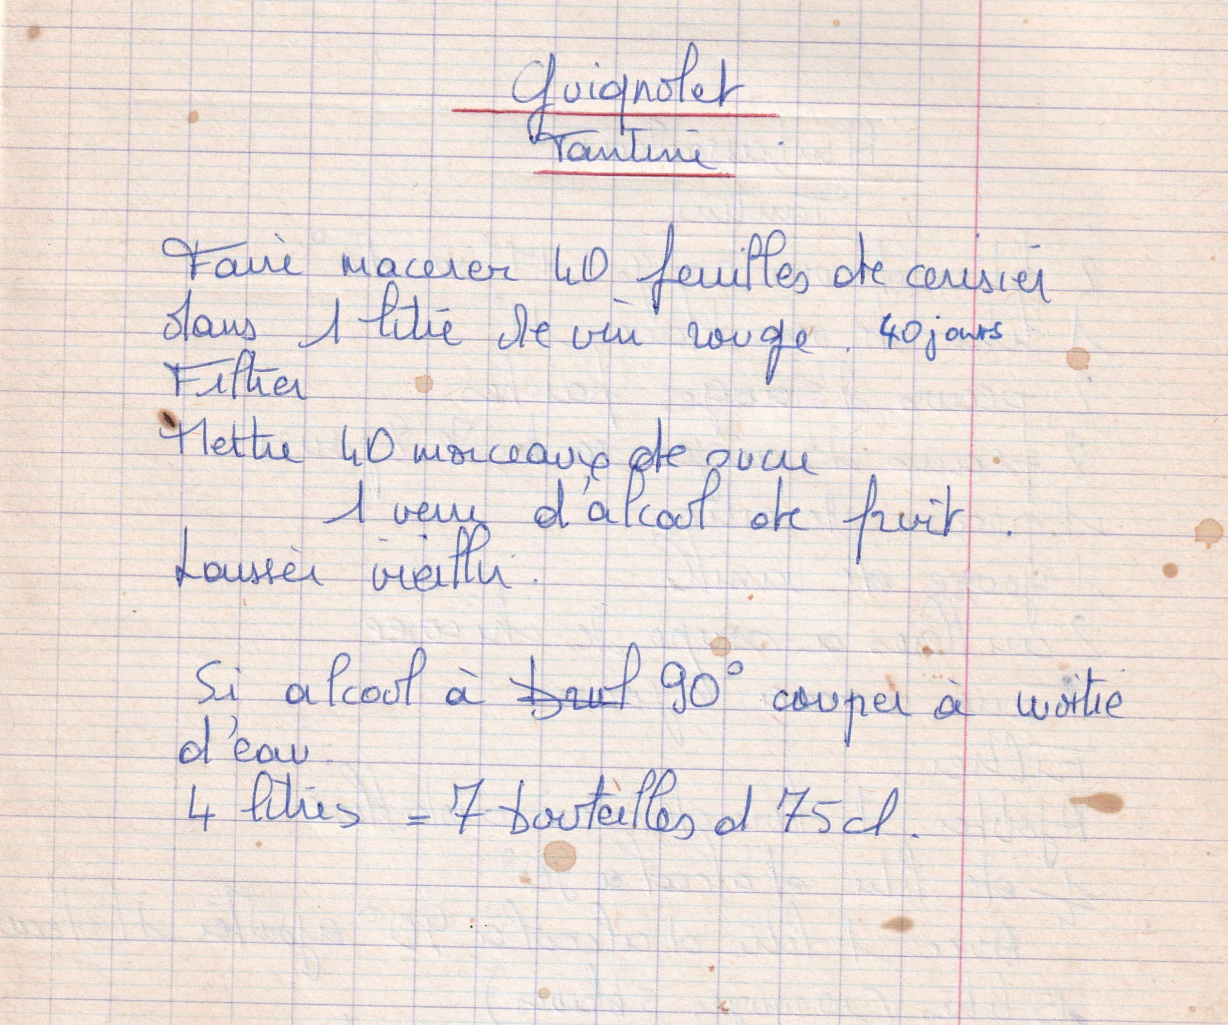 Guignolet
Tantine
Faire macerer 40 feuilles de cerisier
dans 1 litre de vin rouge. 40 jours
Filtrer
Mettre 40 morceaux de sucre
1 verre d'alcool de fruit.
Laisser vieillir.
Si alcool à brut 90° couper à moitie
d'eau.
4 litres = 7 bouteilles d 75 cl.